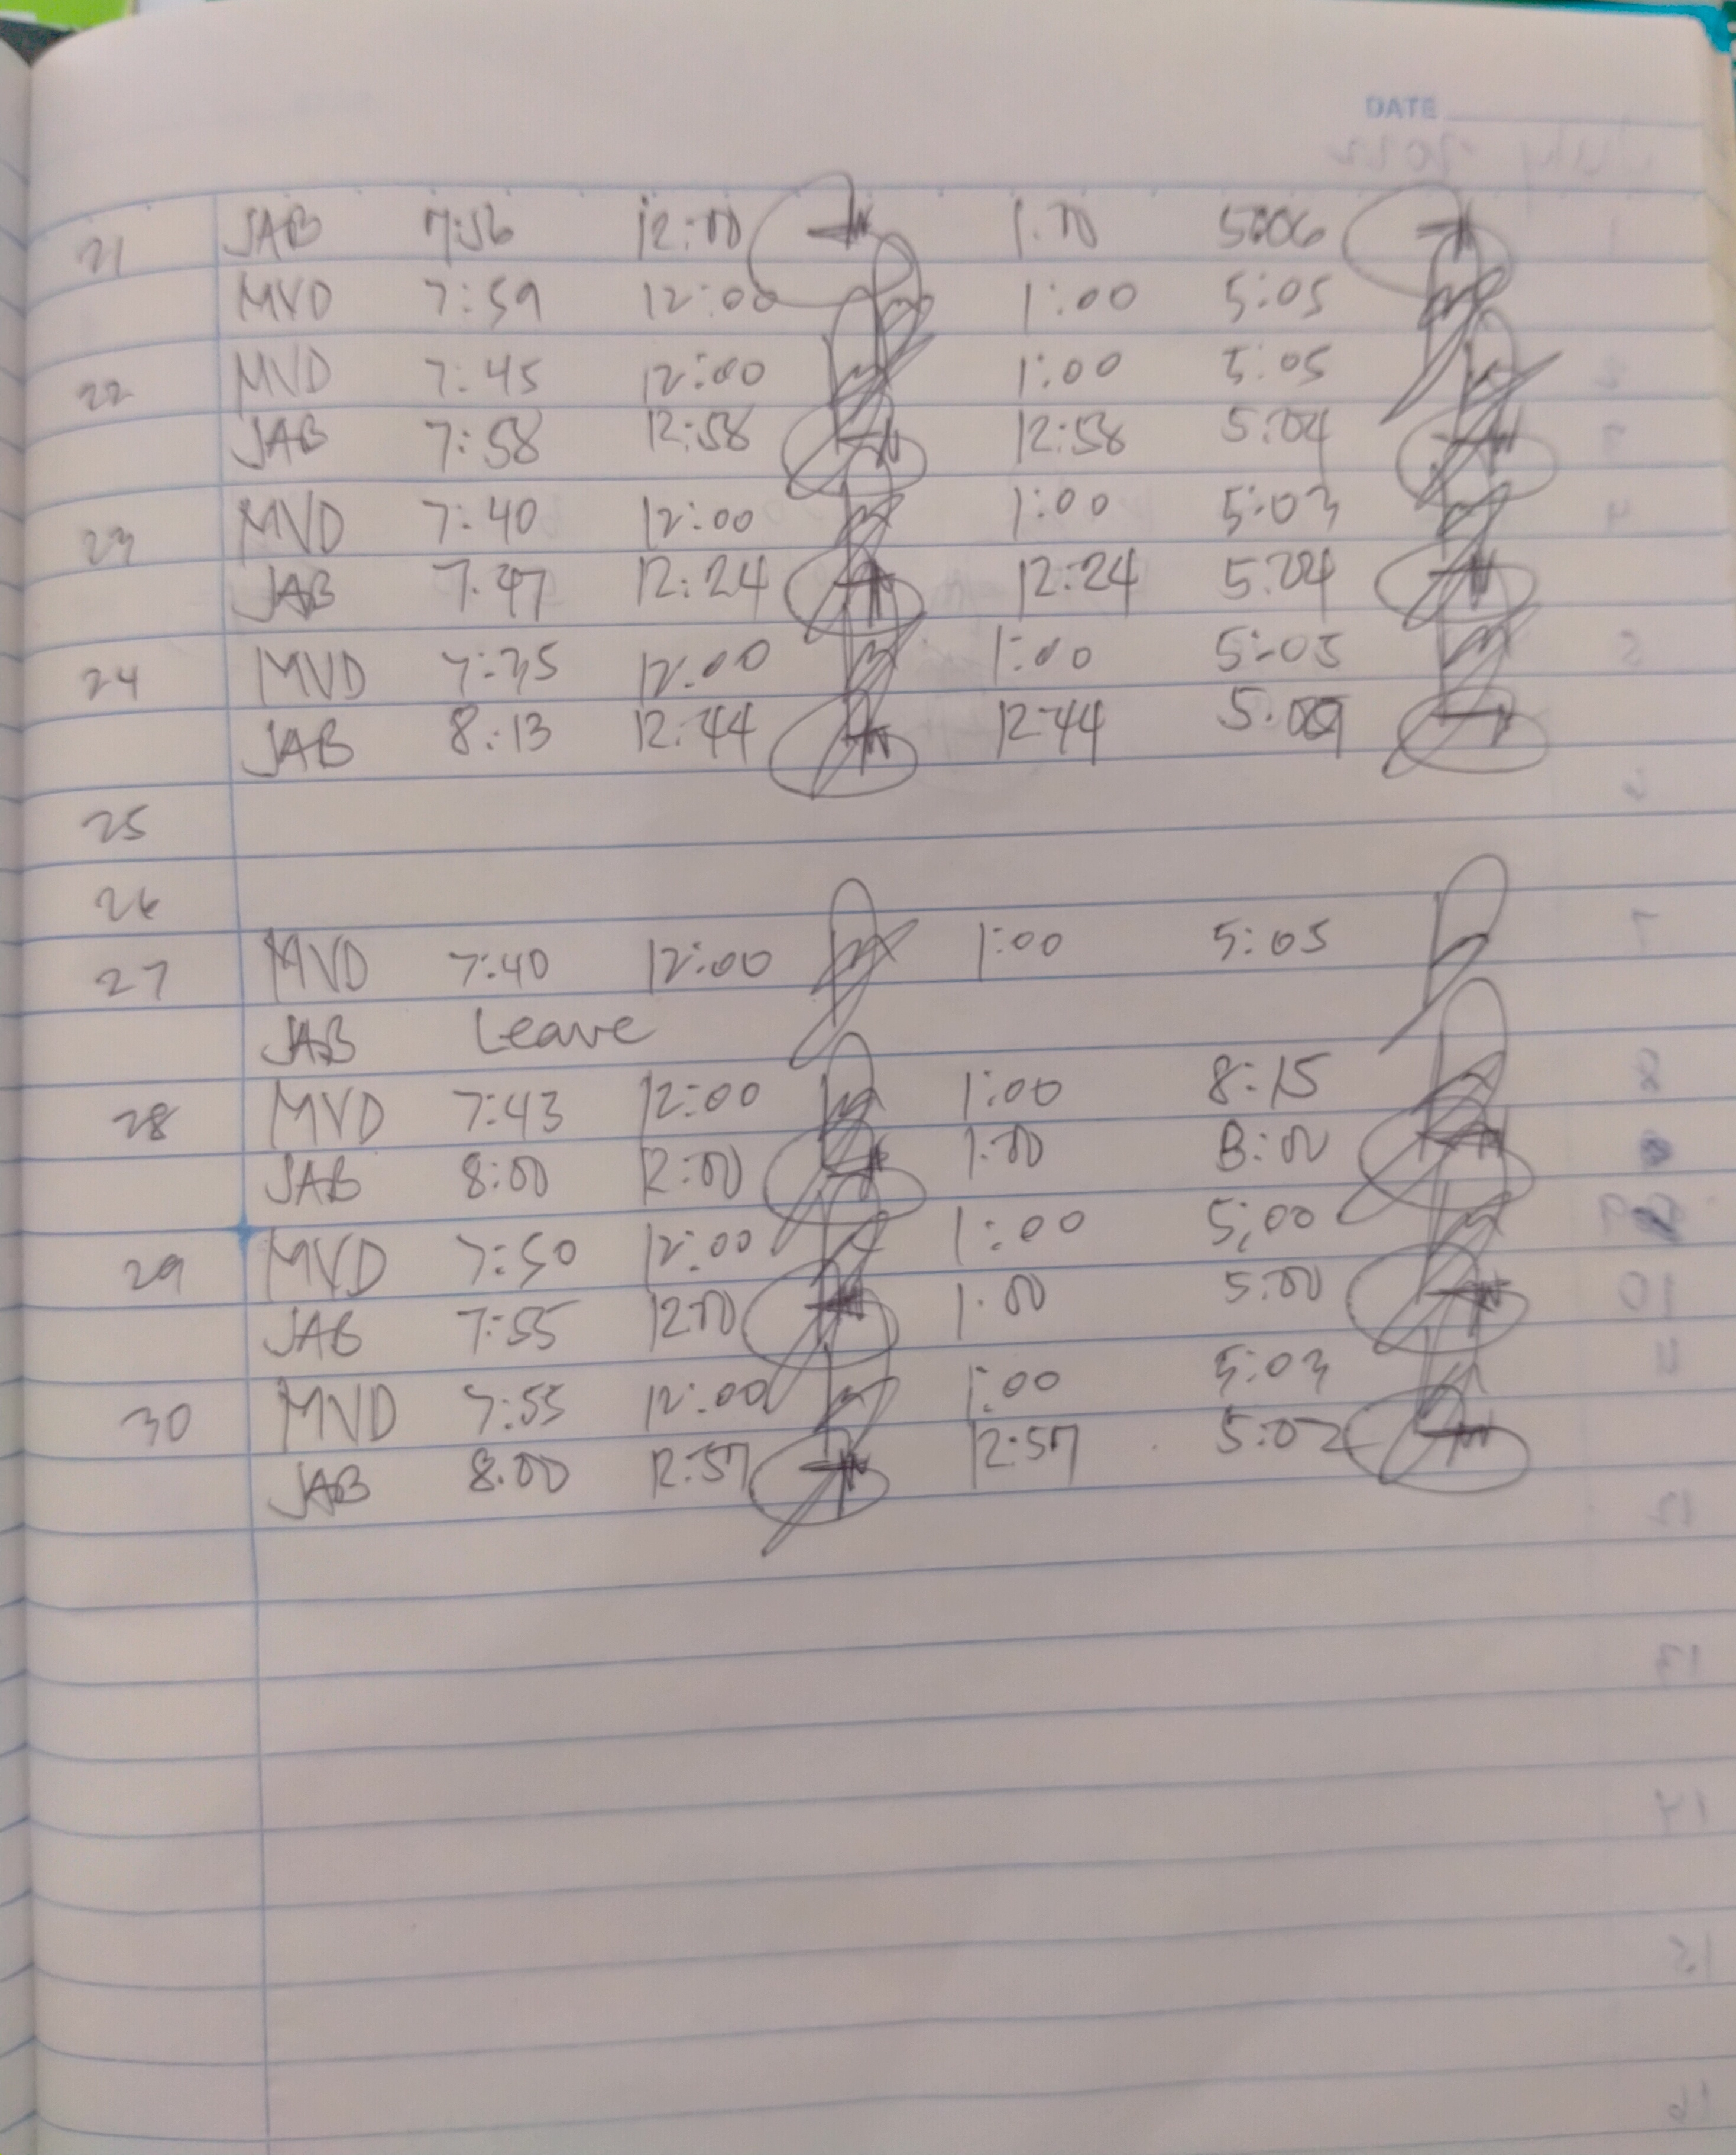 DATE
21 JAB 7:56 12:00 1:00 5:06
MVD 7:59 12:00 1:00 5:05
22 MVD 7:45 12:00 1:00 5:05
JAB 7:58 12:58 12:58 5:04
23 MVD 7:40 12:00 1:00 5:03
JAB 7:47 12:24 12:24 5:04
24 MVD 7:35 12:00 1:00 5:05
JAB 8:13 12:44 12:44
25
26
27 MVD 7:40 12:00 1:00 5:05
JAB Leave
28 MVD 7:43 12:00 1:00 8:15
JAB 8:00 12:00 1:00 8:00
29 MVD 7:50 12:00 1:00 5:00
JAB 7:55 12:00 1:00 5:00
30 MVD 7:55 12:00 1:00 5:03
JAB 8:00 12:57 12:57 5:02